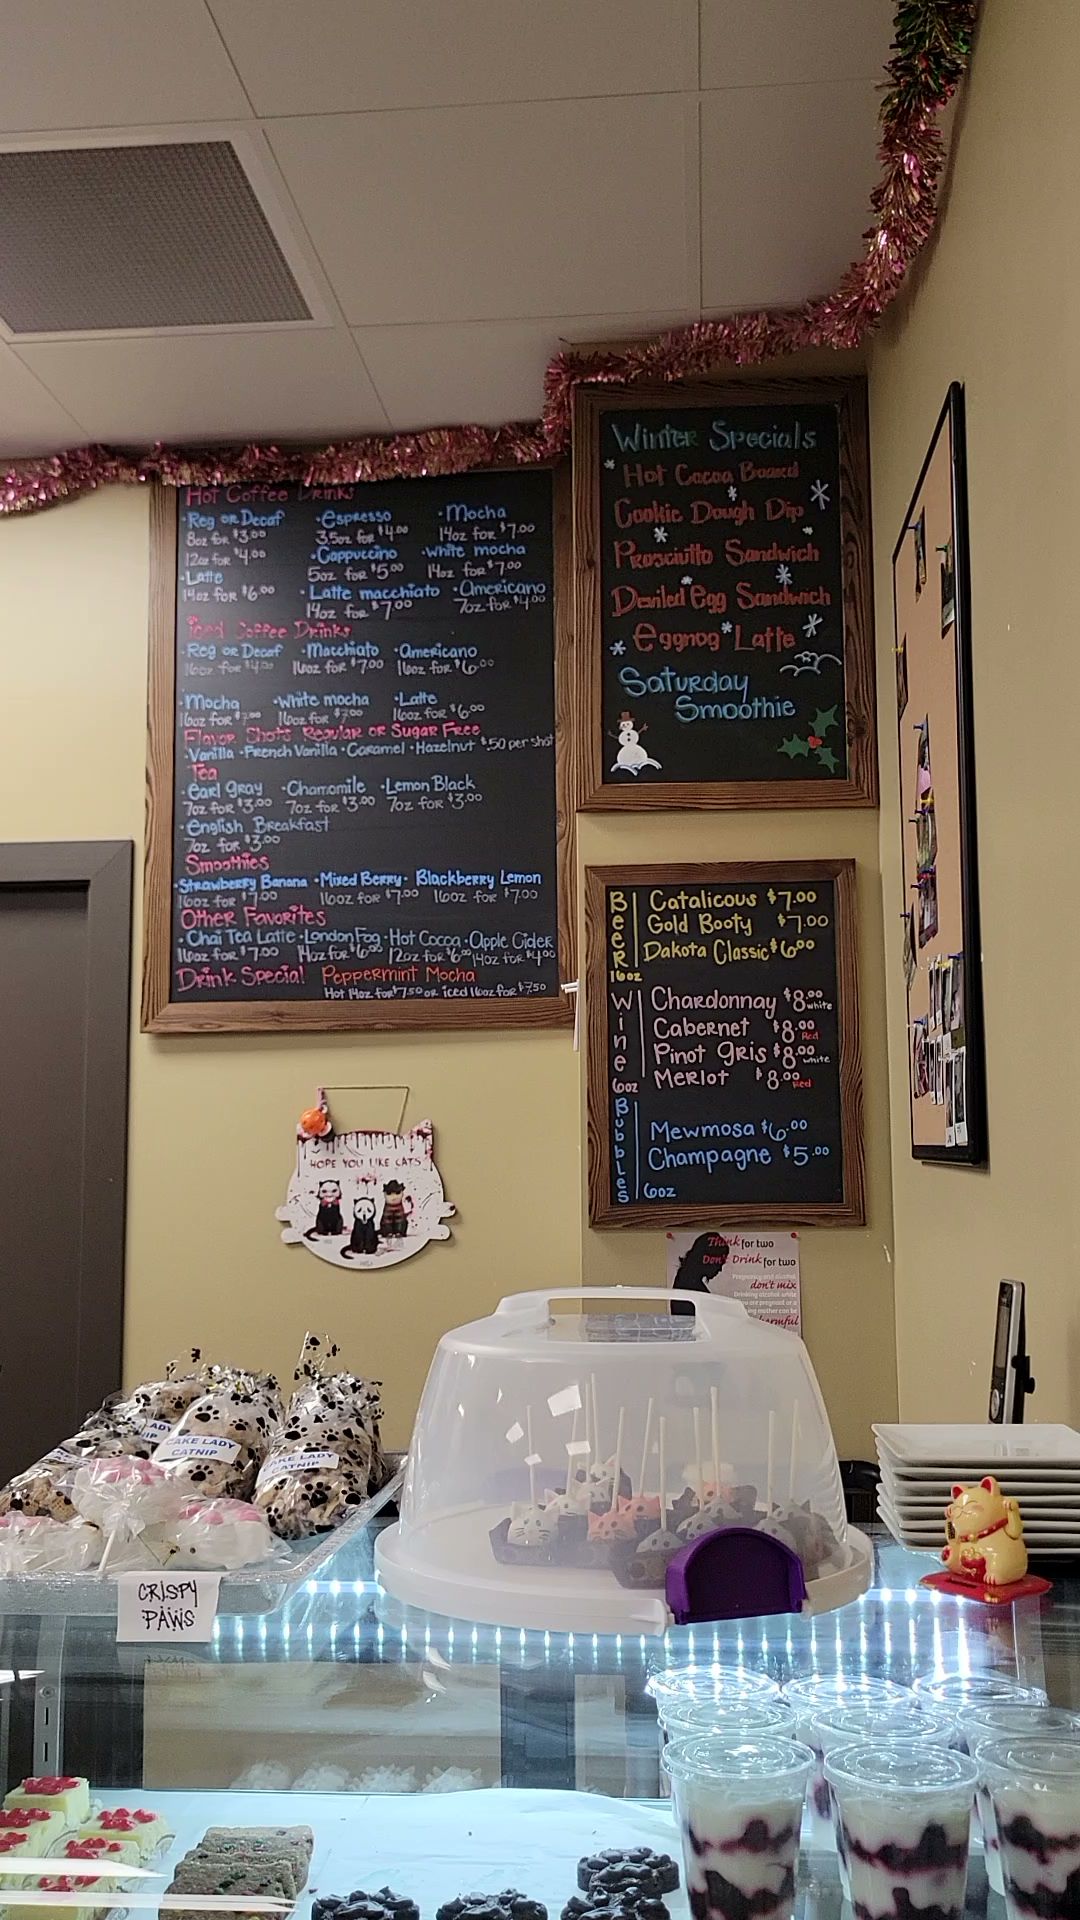 Hot Coffee Drinks
•Reg or Decaf •Espresso •Mocha
8oz for $3.00 3.5oz for $4.00 14oz for $7.00
12oz for $4.00 •Cappuccino •White mocha
•Latte 5oz for $5.00 14oz for $7.00
14oz for $6.00 •Latte macchiato •Americano
14oz for $7.00 7oz for $4.00
Iced Coffee Drinks
•Reg or Decaf •Macchiato •Americano
16oz for $4.00 16oz for $7.00 16oz for $6.00
•Mocha •White mocha •Latte
16oz for $7.00 16oz for $7.00 16oz for $6.00
Flavor Shots Regular or Sugar Free
•Vanilla •French Vanilla •Caramel •Hazelnut $.50 per shot
Tea
•Earl Gray •Chamomile •Lemon Black
7oz for $3.00 7oz for $3.00 7oz for $3.00
•English Breakfast
7oz for $3.00
Smoothies
•Strawberry Banana •Mixed Berry• Blackberry Lemon
16oz for $7.00 16oz for $7.00 16oz for $7.00
Other Favorites
•Chai Tea Latte •London Fog •Hot Cocoa •Apple Cider
16oz for $7.00 14oz for $6.00 12oz for $6.00 14oz for $4.00
Drink Special Peppermint Mocha
Hot 14oz for $7.50 or iced 16oz for $7.50
Winter Specials
Hot Cocoa Board
Cookie Dough Dip
Prosciutto Sandwich
Deviled Egg Sandwich
Eggnog Latte
Saturday
Smoothie
Beer
16oz
Catalicous $7.00
Gold Booty $7.00
Dakota Classic $6.00
Wine
6oz
Chardonnay $8.00 white
Cabernet $8.00 Red
Pinot Gris $8.00 white
Merlot $8.00 Red
Bubbles
Mewmosa $6.00
Champagne $5.00
6oz
HOPE YOU LIKE CATS
Think for two
Don't Drink for two
Pregnancy and alcohol
don't mix
Drinking alcohol while
you are pregnant or a
mother can be
harmful
CAKE LADY
CATNIP
CAKE LADY
CATNIP
CRISPY
PAWS